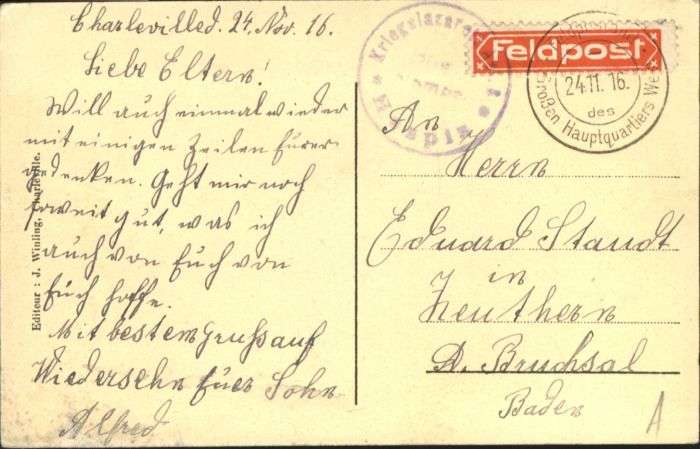 Charleville d. 24. Nov. 16.
Liebe Eltern!
Will auch einmal wieder
mit einigen Zeilen Eurer
gedenken. Geht mir noch
soweit gut, was ich
auch von Euch von
Euch hoffe.
Mit bestem Gruß auf
Wiedersehn Euer Sohn
Alfred
Editeur : J. Winling, Charleville.
Kriegslazarett
Feldpost
24.11.16.
des
Großen Hauptquartiers
An
Herrn
Eduard Staudt
in
Zeuthern
A. Bruchsal
Baden
A